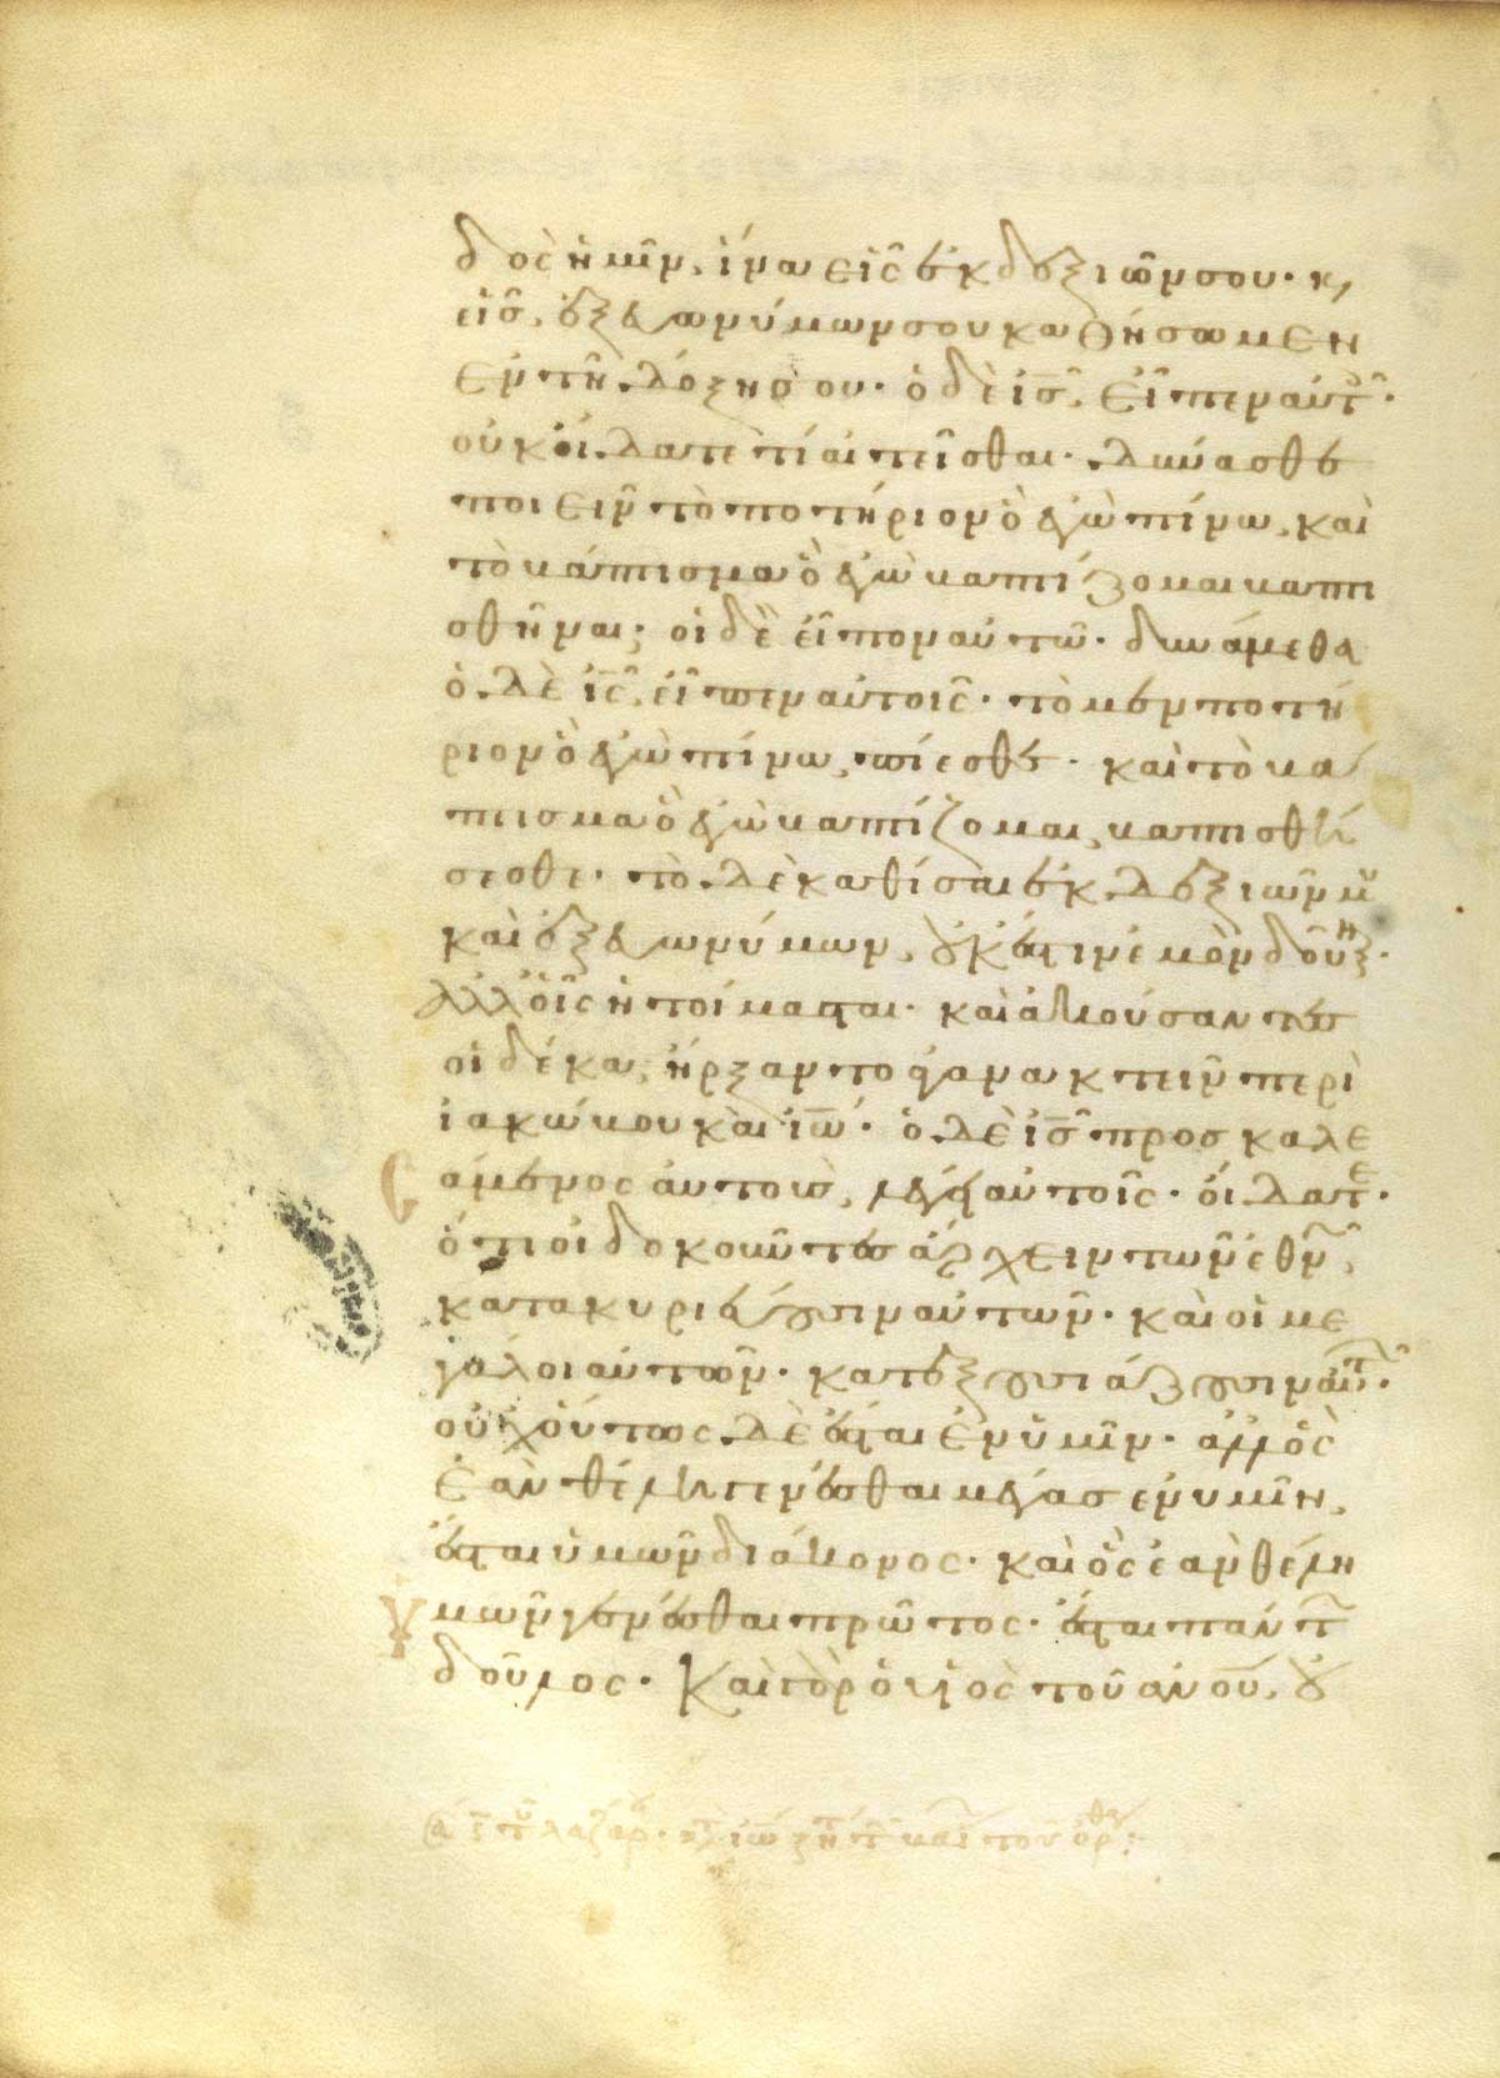 δὸς ἡμῖν, ἵνα εἷς ἐκ δεξιῶν σου· κ,
εἷσ, ἐξ εὐωνύμων σου καθήσωμεν
ἐν τῆ δόξη σου· ὁ δὲ ισ, εἶπεν αὐτ·
οὐκ οἴδατε τί αἰτεῖσθαι· δύνασθε
ποιεῖν τὸ ποτήριον ὃ ἐγὼ πίνω, καὶ
τὸ βάπτισμα ὃ ἐγὼ βαπτίζομαι βαπτι
σθῆναι; οἱ δὲ εἶπον αὐτῶ· δυνάμεθα
ὁ δὲ ις, εἶπεν αὐτοῖς· τὸ μὲν ποτή
ριον ὃ ἐγὼ πίνω, πίεσθε· καὶ τὸ βά
πτισμα ὃ ἐγὼ βαπτίζομαι, βαπτισθή
σεσθε· τὸ δὲ καθίσαι ἐκ δεξιῶν μου
καὶ ἐξ εὐωνύμων, οὐκ ἔστιν ἐμὸν δοῦν·
ἀλλ οἷς ἡτοίμασται· καὶ ἀκούσαντεσ
οἱ δέκα, ἤρξαντο ἀγανακτεῖν περὶ
ἰακώβου καὶ ιω· ὁ δὲ ισ προσκαλε
σάμενος αὐτοὺσ, λέγει αὐτοῖς· οἴδατε·
ὅτι οἱ δοκοῦντεσ ἄρχειν τῶν ἐθν,
κατακυριεύουσιν αὐτῶν· καὶ οἱ με
γάλοι αὐτῶν· κατεξουσιάζουσιν αὐτ·
οὐχ οὕτως δὲ ἔσται ἐν ὑμῖν· ἀλλ ὃς
ἐὰν θέλη γενέσθαι μέγασ ἐν ὑμῖν,
ἔσται ὑμῶν διάκονος· καὶ ὃς ἐὰν θέλη
ὑμῶν γενέσθαι πρῶτος· ἔσται πάντ
δοῦλος· Καὶ γὰρ ὁ υἱὸς τοῦ ανου, οὐ